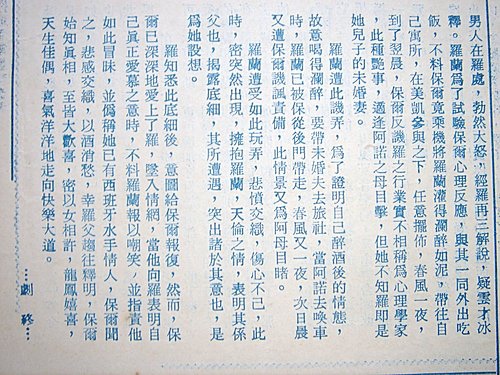 男人在羅處，勃然大怒，經羅再三解說，疑雲才冰
釋。羅蘭爲了試驗保爾心理反應，與其一同外出吃
飯，不料保爾竟乘機將羅蘭灌得瀾醉如泥，帶往自
己寓所，在美凱參與之下，任意擺佈，春風一夜，
到了翌晨，保爾反譏羅之行業實不相稱爲心理學家
，此種艷事，適逢阿諾之母目擊，但她不知羅即是
她兒子的未婚妻。
羅蘭遭此譏弄，爲了證明自己醉酒後的情態，
故意喝得瀾醉，要帶未婚夫去旅社，當阿諾去喚車
時，羅蘭已被保從後門帶走，春風又一夜，次日晨
又遭保爾譏諷責備，此情景又爲阿母目睹。
羅蘭遭受如此玩弄，悲憤交織，傷心不己，此
時，密突然出現，擁抱羅蘭，天倫之情，表明其係
父也，揭露底細，其所遭遇，突出諸於其意也，是
爲她設想。
羅知悉此底細後，意圖給保爾報復，然而，保
爾已深深地愛上了羅，墜入情網，當他向羅表明自
己眞正愛慕之意時，不料羅蘭報以嘲笑，並指責他
如此冒昧，並僞稱她已有西班牙水手情人，保爾聞
之，悲感交織，以酒消愁，幸羅父趨往釋明，保爾
始知眞相，至皆大歡喜，密以女相許，龍鳳嬉喜，
天生佳偶，喜氣洋洋地走向快樂大道。
…劇終…